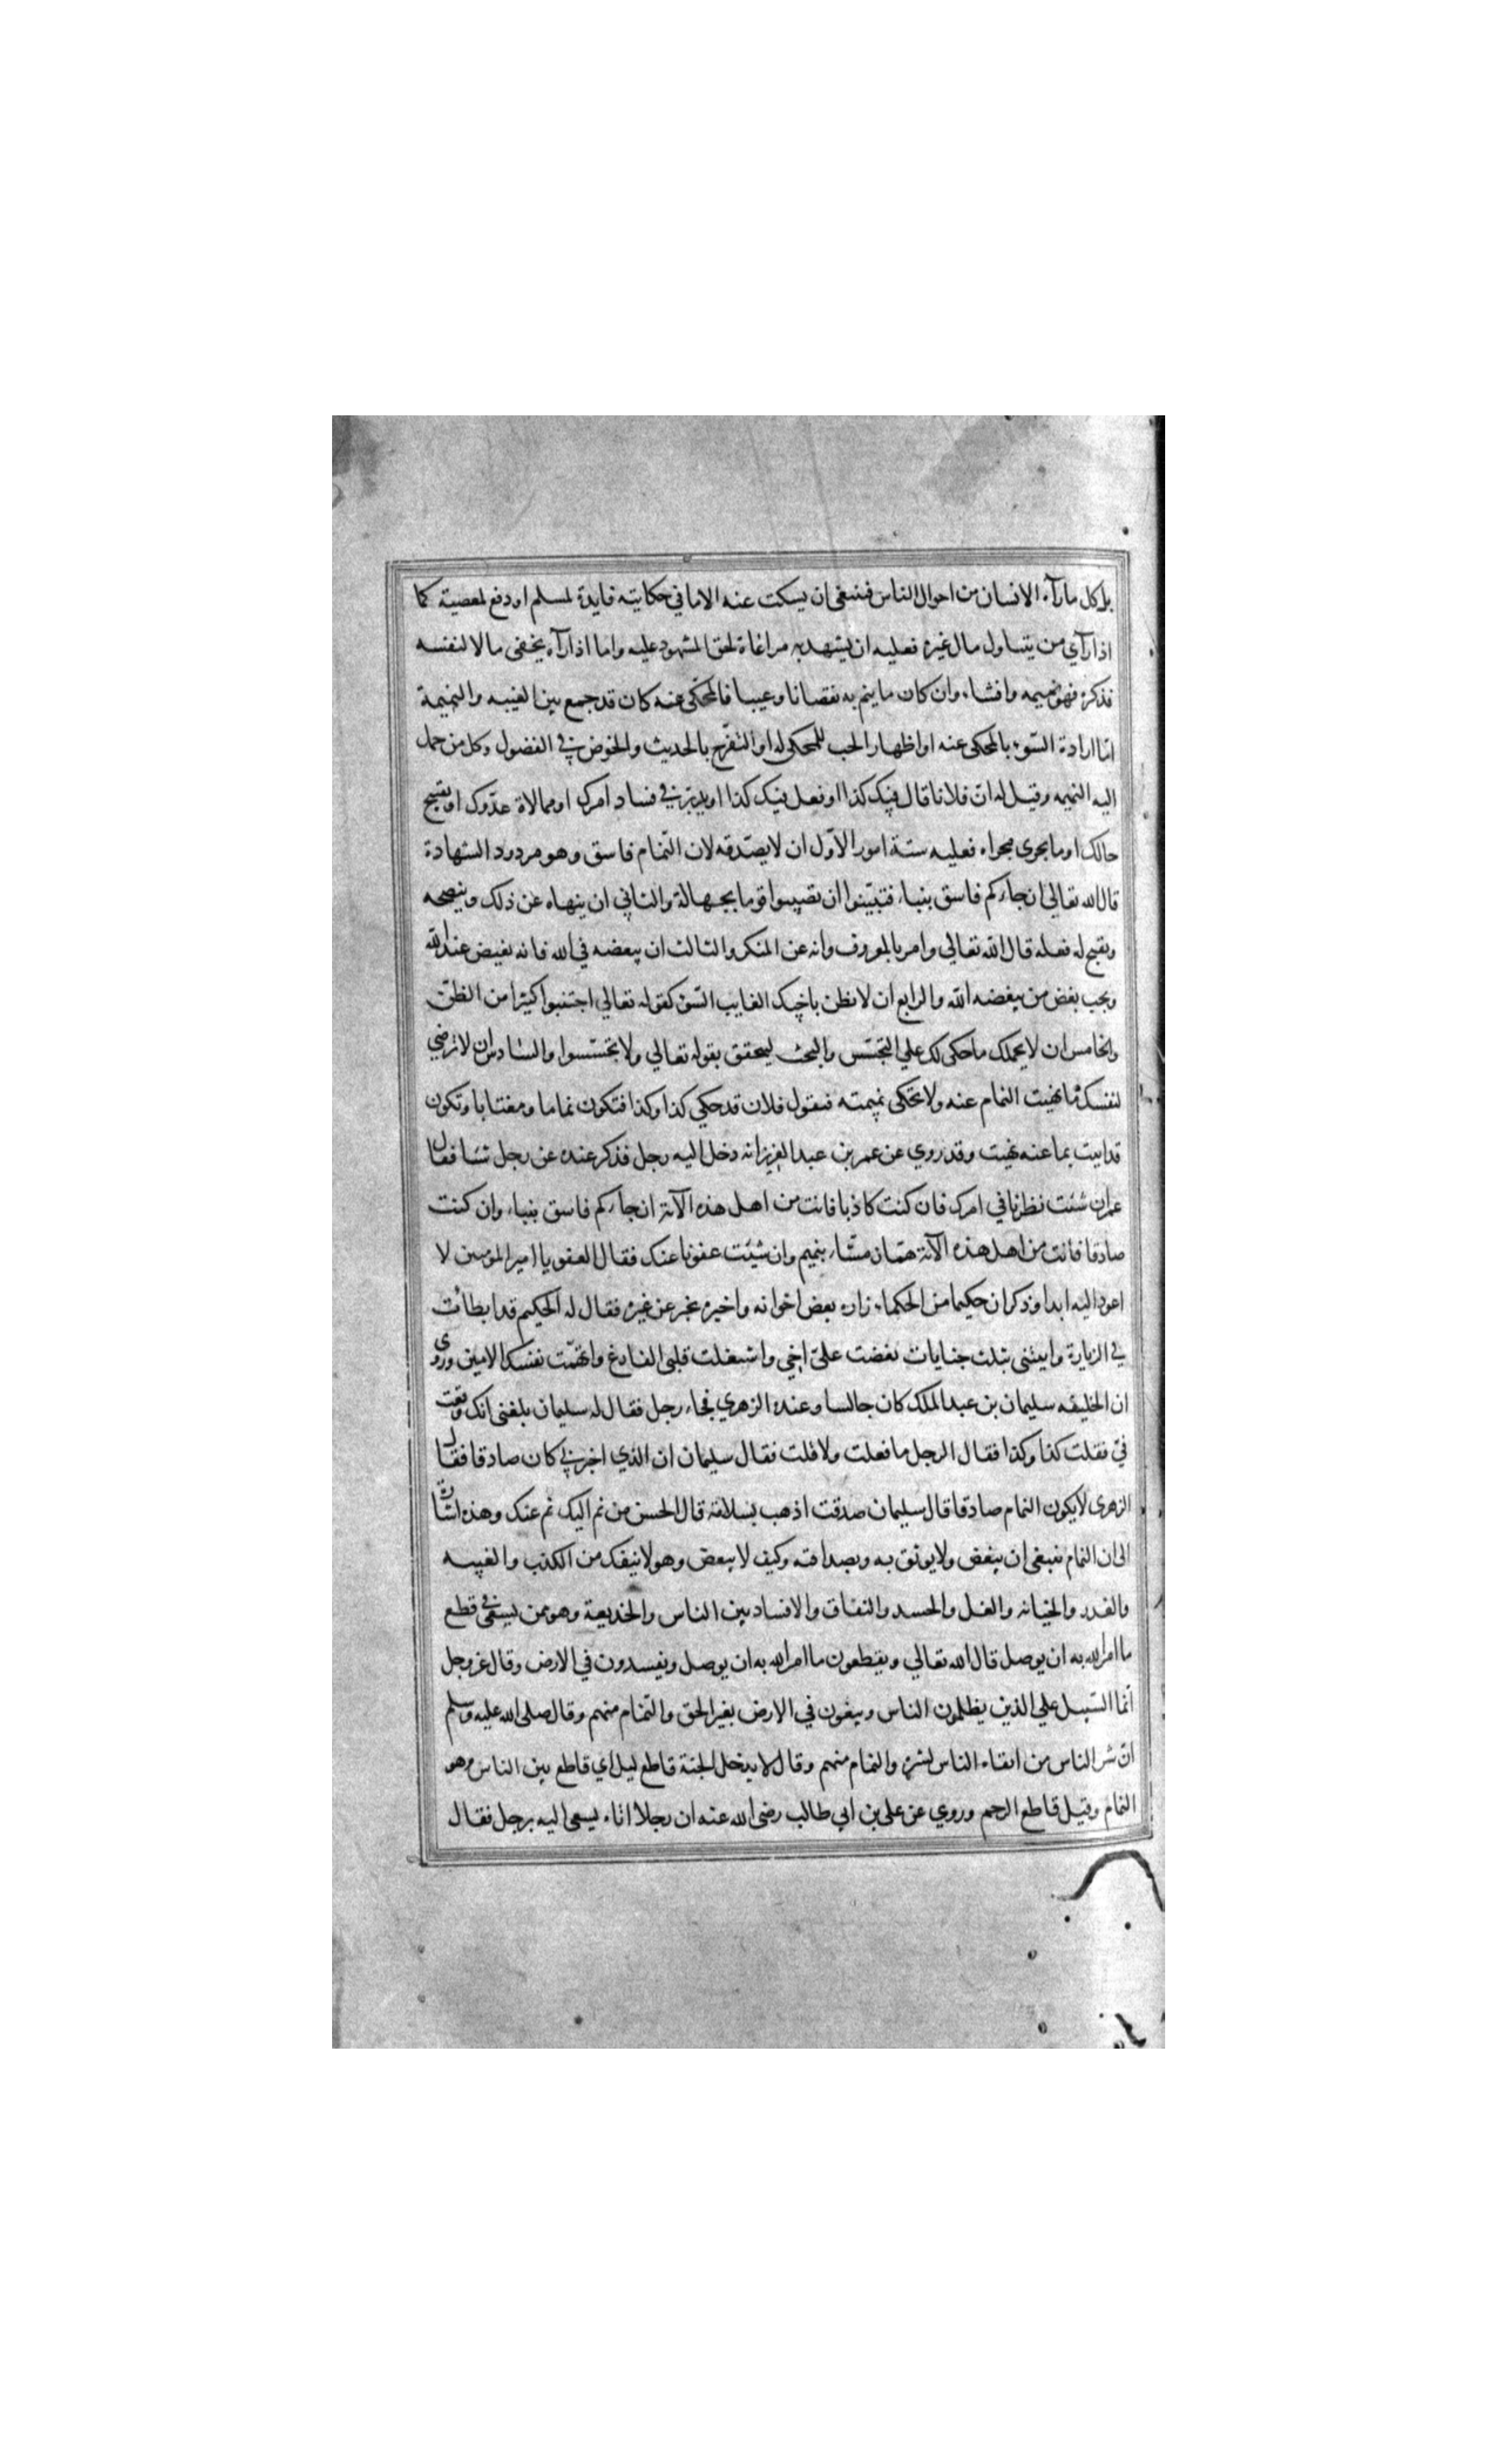 بل كل ما رآه الانسان من احوال الناس فينبغي ان يسكت عنه الا ما في حكايته فايدة لمسلم او دفع لمعصية كما
اذا رآي من يتناول مال غيره فعليه ان يشهد به مراعاة لحق المشهود عليه واما اذا رآه يخفي مالا لنفسه
فذكره فهو نميمه وافشاء وان كان ما ينم به نقصانا وعيبا فالمحكى عنه كان قد جمع بين الغيبه والنميمة
اما ارادة السوء بالمحكى عنه او اظهار الحب للمحكى له او التفرج بالحديث والخوض في الفضول وكل من حمل
اليه النميمه وقيل له ان فلانا قال فيك كذا او فعل فيك كذا او يدبر في فساد امرك او ممالاة عدوك او تقبيح
حالك او ما يجرى مجراه فعليه ستة امور الاول ان لا يصدقه لان النمام فاسق وهو مردود الشهادة
قال الله تعالى ان جاءكم فاسق بنباء فتبينوا ان تصيبوا قوما بجهالة والثاني ان ينهاه عن ذلك وينصحه
ويقبح له فعله قال الله تعالي وامر بالمعروف وانه عن المنكر والثالث ان يبغضه في الله فانه بغيض عند الله
ويجب بغض من يبغضه الله والرابع ان لا تظن باخيك الغايب السوء كقوله تعالي اجتنبوا كثيرا من الظن
والخامس ان لا يحملك ما حكى لك علي التجسس والبحث ليحقق بقوله تعالي ولا تجسسوا والسادس ان لا ترضي
لنفسك ما نهيت النمام عنه ولا تحكى نميمته فتقول فلان قد حكي كذا وكذا فتكون نماما ومغتابا وتكون
قد اتيت بما عنه نهيت وقد روي عن عمر بن عبد العزيز انه دخل اليه رجل فذكر عنده عن رجل شئا فقال
عمر ان شئت نظرنا في امرك فان كنت كاذبا فانت من اهل هذه الآية ان جاءكم فاسق بنباء وان كنت
صادقا فانت من اهل هذه الآية همان مشاء بنميم وان شيئت عفونا عنك فقال العفو يا امير المؤمنين لا
اعود اليه ابدا وذكر ان حكيما من الحكماء زاره بعض اخوانه واخبره بخبر عن غيره فقال له الحكيم قد ابطأت
في الزيارة واتيتنى بثلث جنايات بغضت علىّ اخي واشغلت قلبى الفارغ واتهمت نفسك الامين وروى
ان الخليفه سليمان بن عبد الملك كان جالسا وعنده الزهري فجاء رجل فقال له سليمان بلغنى انك وقعت
في فقلت كذا وكذا فقال الرجل ما فعلت ولا قلت فقال سليمان ان الذي اخبرني كان صادقا فقال
الزهرى لا يكون النمام صادقا قال سليمان صدقت اذهب بسلامة قال الحسن من نم اليك نم عنك وهذه اشارة
الى ان النمام ينبغى ان يبغض ولا يوثق به وبصداقته وكيف لا يبغض وهو لا ينفك من الكذب والغيبه
والغدر والخيانه والغل والحسد والنفاق والافساد بين الناس والخديعة وهو ممن يسعى في قطع
ما امر الله به ان يوصل قال الله تعالي ويقطعون ما امر الله به ان يوصل ويفسدون في الارض وقال عز وجل
انما السبيل علي الذين يظلمون الناس ويبغون في الارض بغير الحق والنمام منهم وقال صلى الله عليه وسلم
ان شر الناس من اتقاه الناس لشره والنمام منهم وقال لا يدخل الجنة قاطع قيل اي قاطع بين الناس وهو
النمام وقيل قاطع الرحم وروي عن على بن ابي طالب رضى الله عنه ان رجلا اتاه يسعى اليه برجل فقال